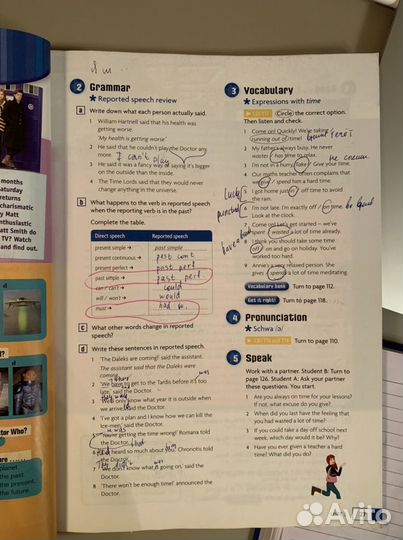 2 Grammar
★ Reported speech review
a Write down what each person actually said.
1 William Hartnell said that his health was
getting worse.
'My health is getting worse'
2 He said that he couldn't play the Doctor any
more. I can't play
3 He said it was a fancy way of saying it's bigger
on the outside than the inside.
4 The Time Lords said that they would never
change anything in the universe.
b What happens to the verb in reported speech
when the reporting verb is in the past?
Complete the table.
Direct speech Reported speech
present simple → past simple
present continuous → past cont
present perfect → past perf
past simple → past perf
can / can't → could
will / won't → would
must → had to
c What other words change in reported
speech?
d Write these sentences in reported speech.
1 'The Daleks are coming!' said the assistant.
The assistant said that the Daleks were
coming.
2 'We have to get to the Tardis before it's too
late,' said the Doctor.
3 only know what year it is outside when
we arrive,' said the Doctor.
4 'I've got a plan and I know how we can kill the
Ice-men,' said the Doctor.
5 'You're getting the time wrong!' Romana told
the Doctor.
6 heard so much about Chronotis told
the Doctor.
7 'We don't know what is going on,' said the
Doctor.
8 'There won't be enough time!' announced the
Doctor.
3 Vocabulary
★ Expressions with time
Circle the correct option.
Then listen and check.
1 Come on! Quickly! We're taking
/ running out of time!
2 My father's always busy. He never
wastes / has time to relax.
3 I'm not in a hurry. Take / Give your time.
4 Our maths teacher often complains that
we give / spend him a hard time.
5 I got home just in / off time to avoid
the rain.
6 I'm not late. I'm exactly off / on time.
Look at the clock.
7 Come on! Let's get started – we've
spent / wasted a lot of time already.
8 I think you should take some time
off / on and go on holiday. You've
worked too hard.
9 Annie's a very relaxed person. She
gives / spends a lot of time meditating.
Vocabulary bank Turn to page 112.
Get it right! Turn to page 118.
4 Pronunciation
★ Schwa /ə/
Turn to page 110.
5 Speak
Work with a partner. Student B: Turn to
page 126. Student A: Ask your partner
these questions. You start.
1 Are you always on time for your lessons?
If not, what excuse do you give?
2 When did you last have the feeling that
you had wasted a lot of time?
3 If you could take a day off school next
week, which day would it be? Why?
4 Have you ever given a teacher a hard
time? What did you do?
months
Saturday
returns
charismatic
y Matt
enthusiastic
Matt Smith do
TV? Watch
and find out.
Doctor Who?
planet.
the past.
present.
the future.
Avito